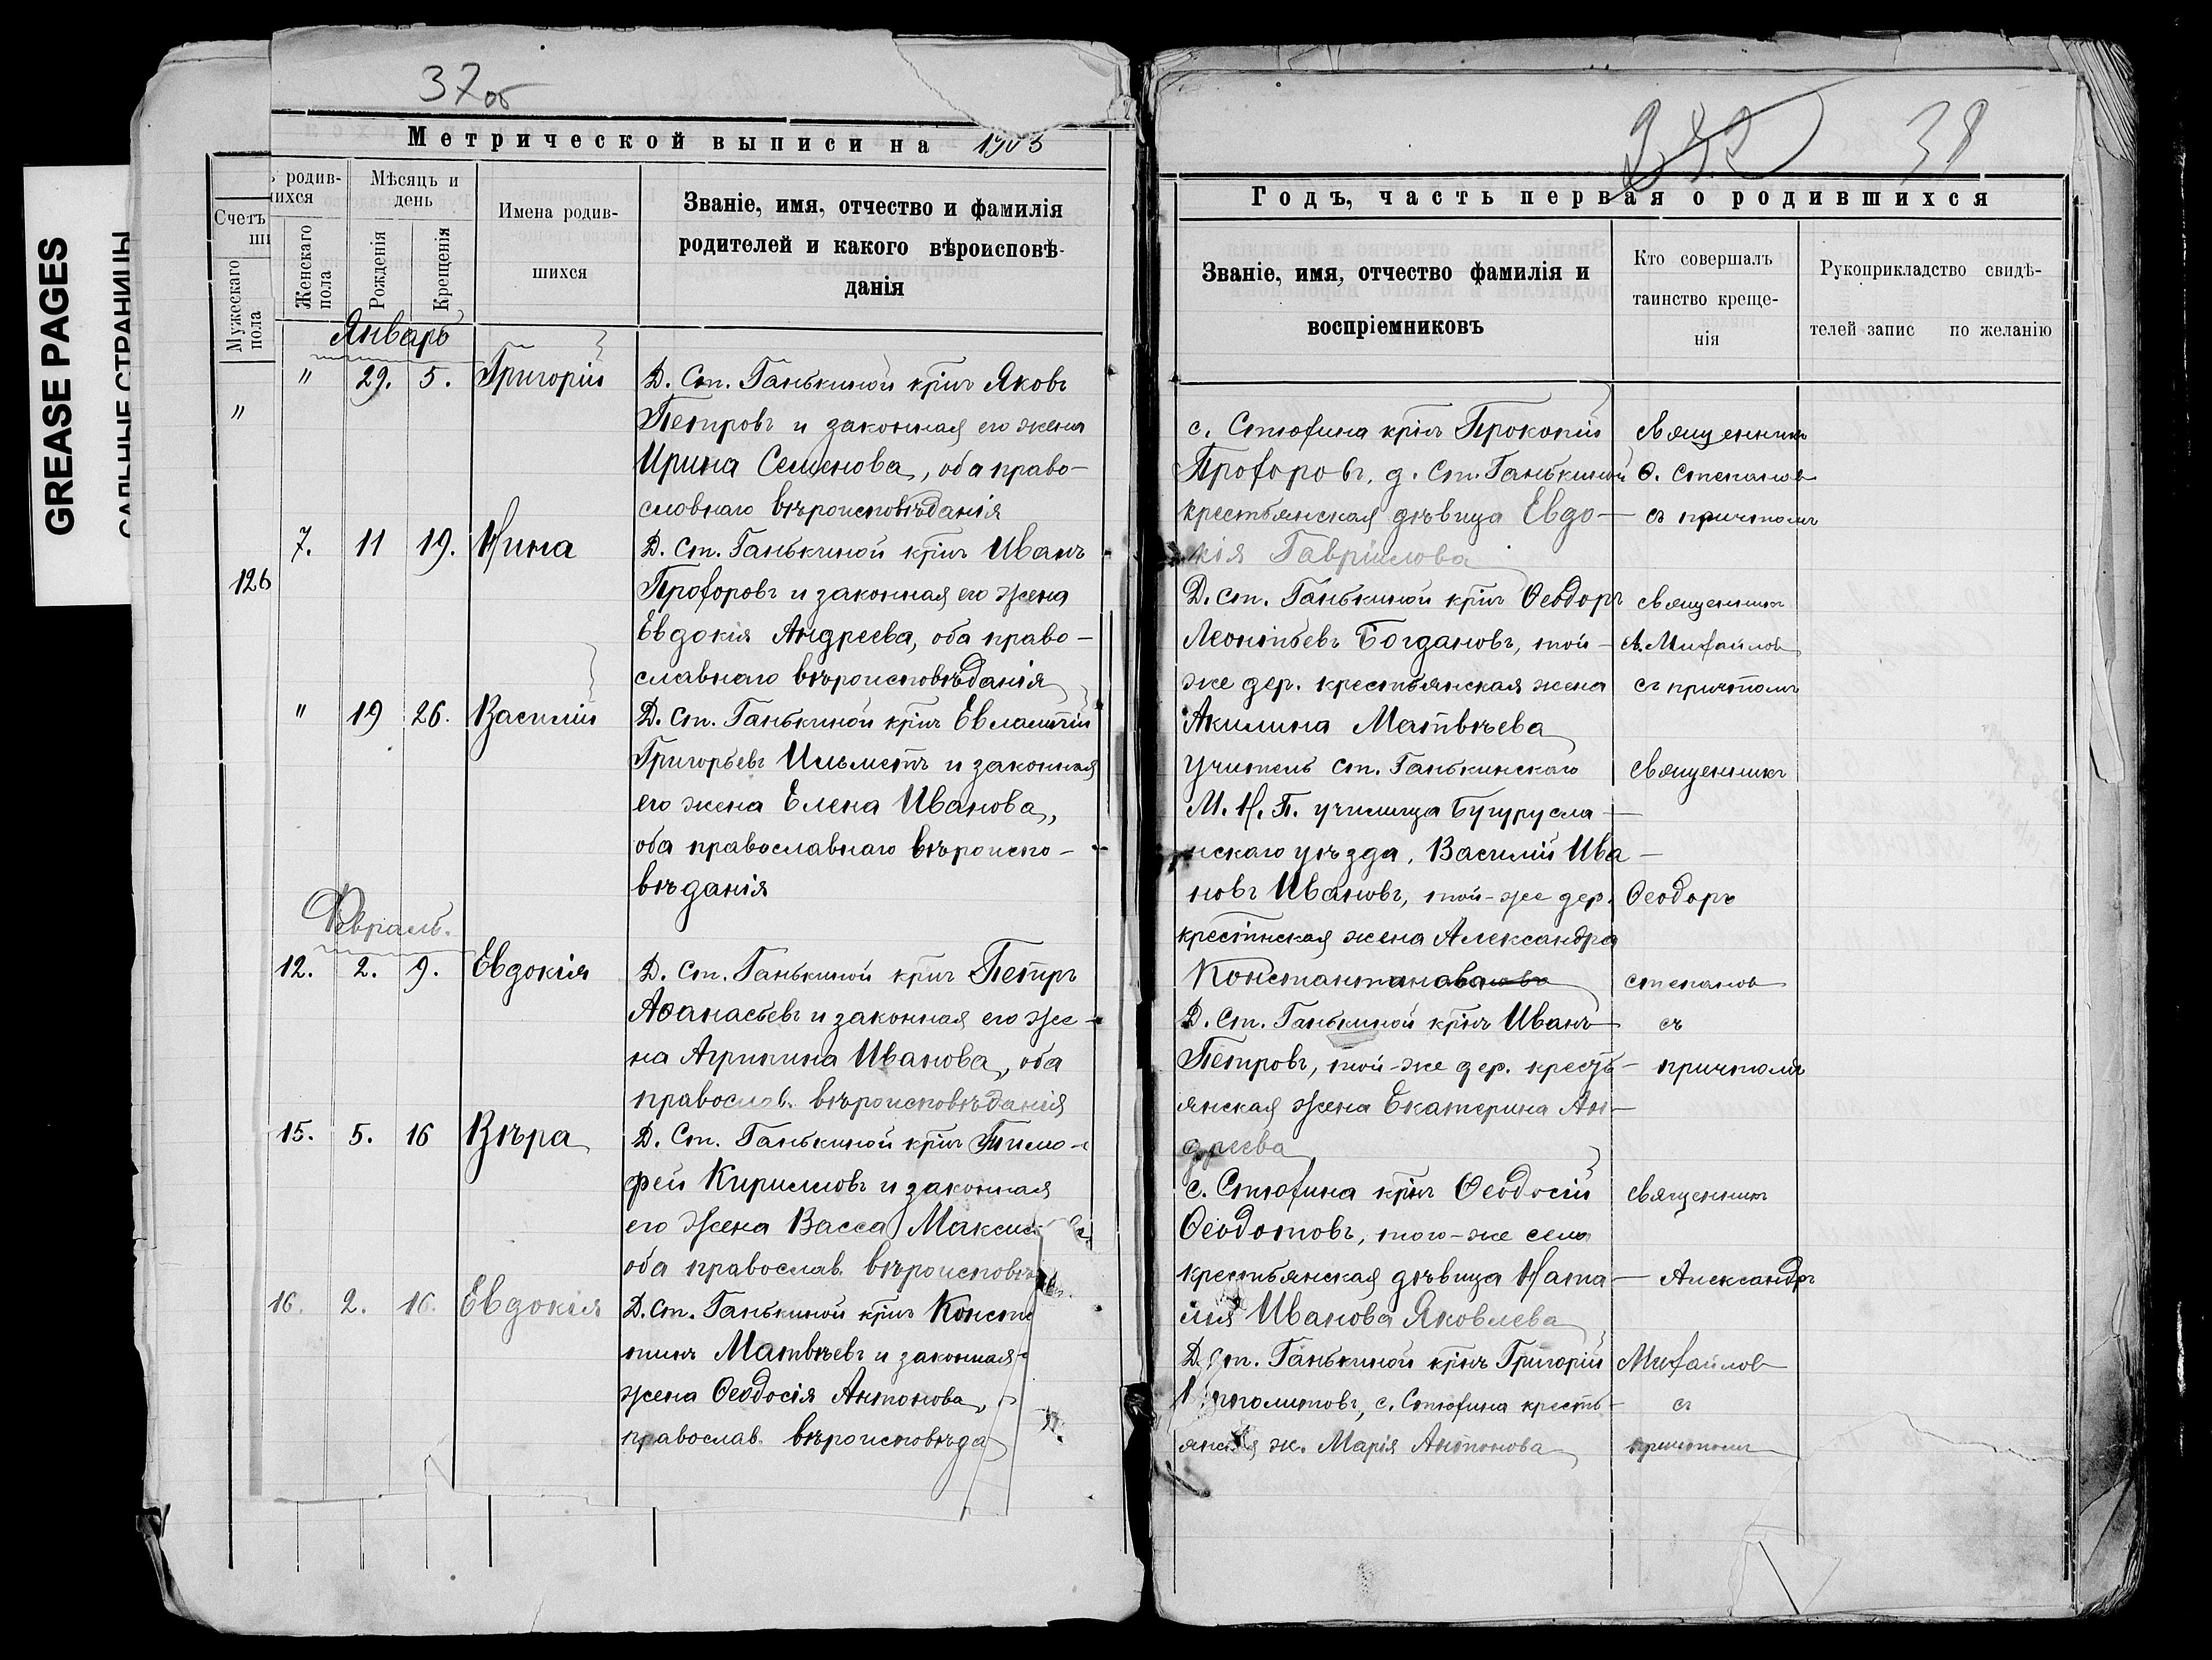 GREASE PAGES
САЛЬНЫЕ СТРАНИЦЫ
37об
Метрической выписи на 1903
ъ родив-
ихся
Счетъ
ши
Мужескаго пола
Женскаго пола
Мѣсяцъ и день
Рожденія
Крещенія
Имена родив-
шихся
Званіе, имя, отчество и фамилія
родителей и какого вѣроисповѣ-
данія
Январь
" " 29. 5. Григорій Д. Ст. Ганькиной кр̃нъ Яковъ
Петровъ и законная его жена
Ирина Семенова, оба право-
словнаго вѣроисповѣданія
7. 11 19. Нина Д. Ст. Ганькиной кр̃нъ Иванъ
126 Прохоровъ и законная его жена
Евдокія Андреева, оба право-
славнаго вѣроисповѣданія
" 19 26. Василій Д. Ст. Ганькиной кр̃нъ Евлампій
Григорьевъ Ильметъ и законная
его жена Елена Иванова,
оба православнаго вѣроиспо-
вѣданія
Февраль.
12. 2. 9. Евдокія Д. Ст. Ганькиной кр̃нъ Петръ
Аѳанасьевъ и законная его же-
на Агрипина Иванова, оба
православ. вѣроисповѣданія
15. 5. 16 Вѣра Д. Ст. Ганькиной кр̃нъ Тимо-
фей Кирилловъ и законная
его жена Васса Макси
оба православ. вѣроисповѣ
16. 2. 16. Евдокія Д. Ст. Ганькиной кр̃нъ Конста
тинъ Матвѣевъ и законная
жена Ѳеодосія Антонова,
православ. вѣроисповѣда
38
Годъ, часть первая о родившихся
Званіе, имя, отчество фамилія и
воспріемниковъ
Кто совершалъ
таинство креще-
нія
Рукоприкладство свидѣ-
телей запис по желанію
с. Стюхина кр̃нъ Прокопій Священникъ
Прохоровъ, д. Ст. Ганькиной Ѳ. Степановъ
крестьянская дѣвица Евдо- съ причтомъ
кія Гавріилова
Д. Ст. Ганькиной кр̃нъ Ѳеодоръ Священникъ
Леонтьевъ Богдановъ, той- А. Михайловъ
же дер. крестьянская жена съ причтомъ
Акилина Матвѣева
Учитель Ст. Ганькинскаго Священникъ
М. Н. П. училища Бугурусла-
нскаго уѣзда, Василій Ива-
новъ Ивановъ, той-же дер. Ѳеодоръ
крестьнская жена Александра
Константинова Степановъ
Д. Ст. Ганькиной кр̃нъ Иванъ съ
Петровъ, той-же дер. кресть- причтомъ
янская жена Екатерина Ан-
дреева
с. Стюхина кр̃нъ Ѳеодосій Священникъ
Ѳеодотовъ, того-же села
крестьянская дѣвица Ната- Александръ
лія Иванова Яковлева
Д. Ст. Ганькиной кр̃нъ Григорій Михайловъ
с. Стюхина кресть- съ
янская ж. Марія Антонова причтомъ